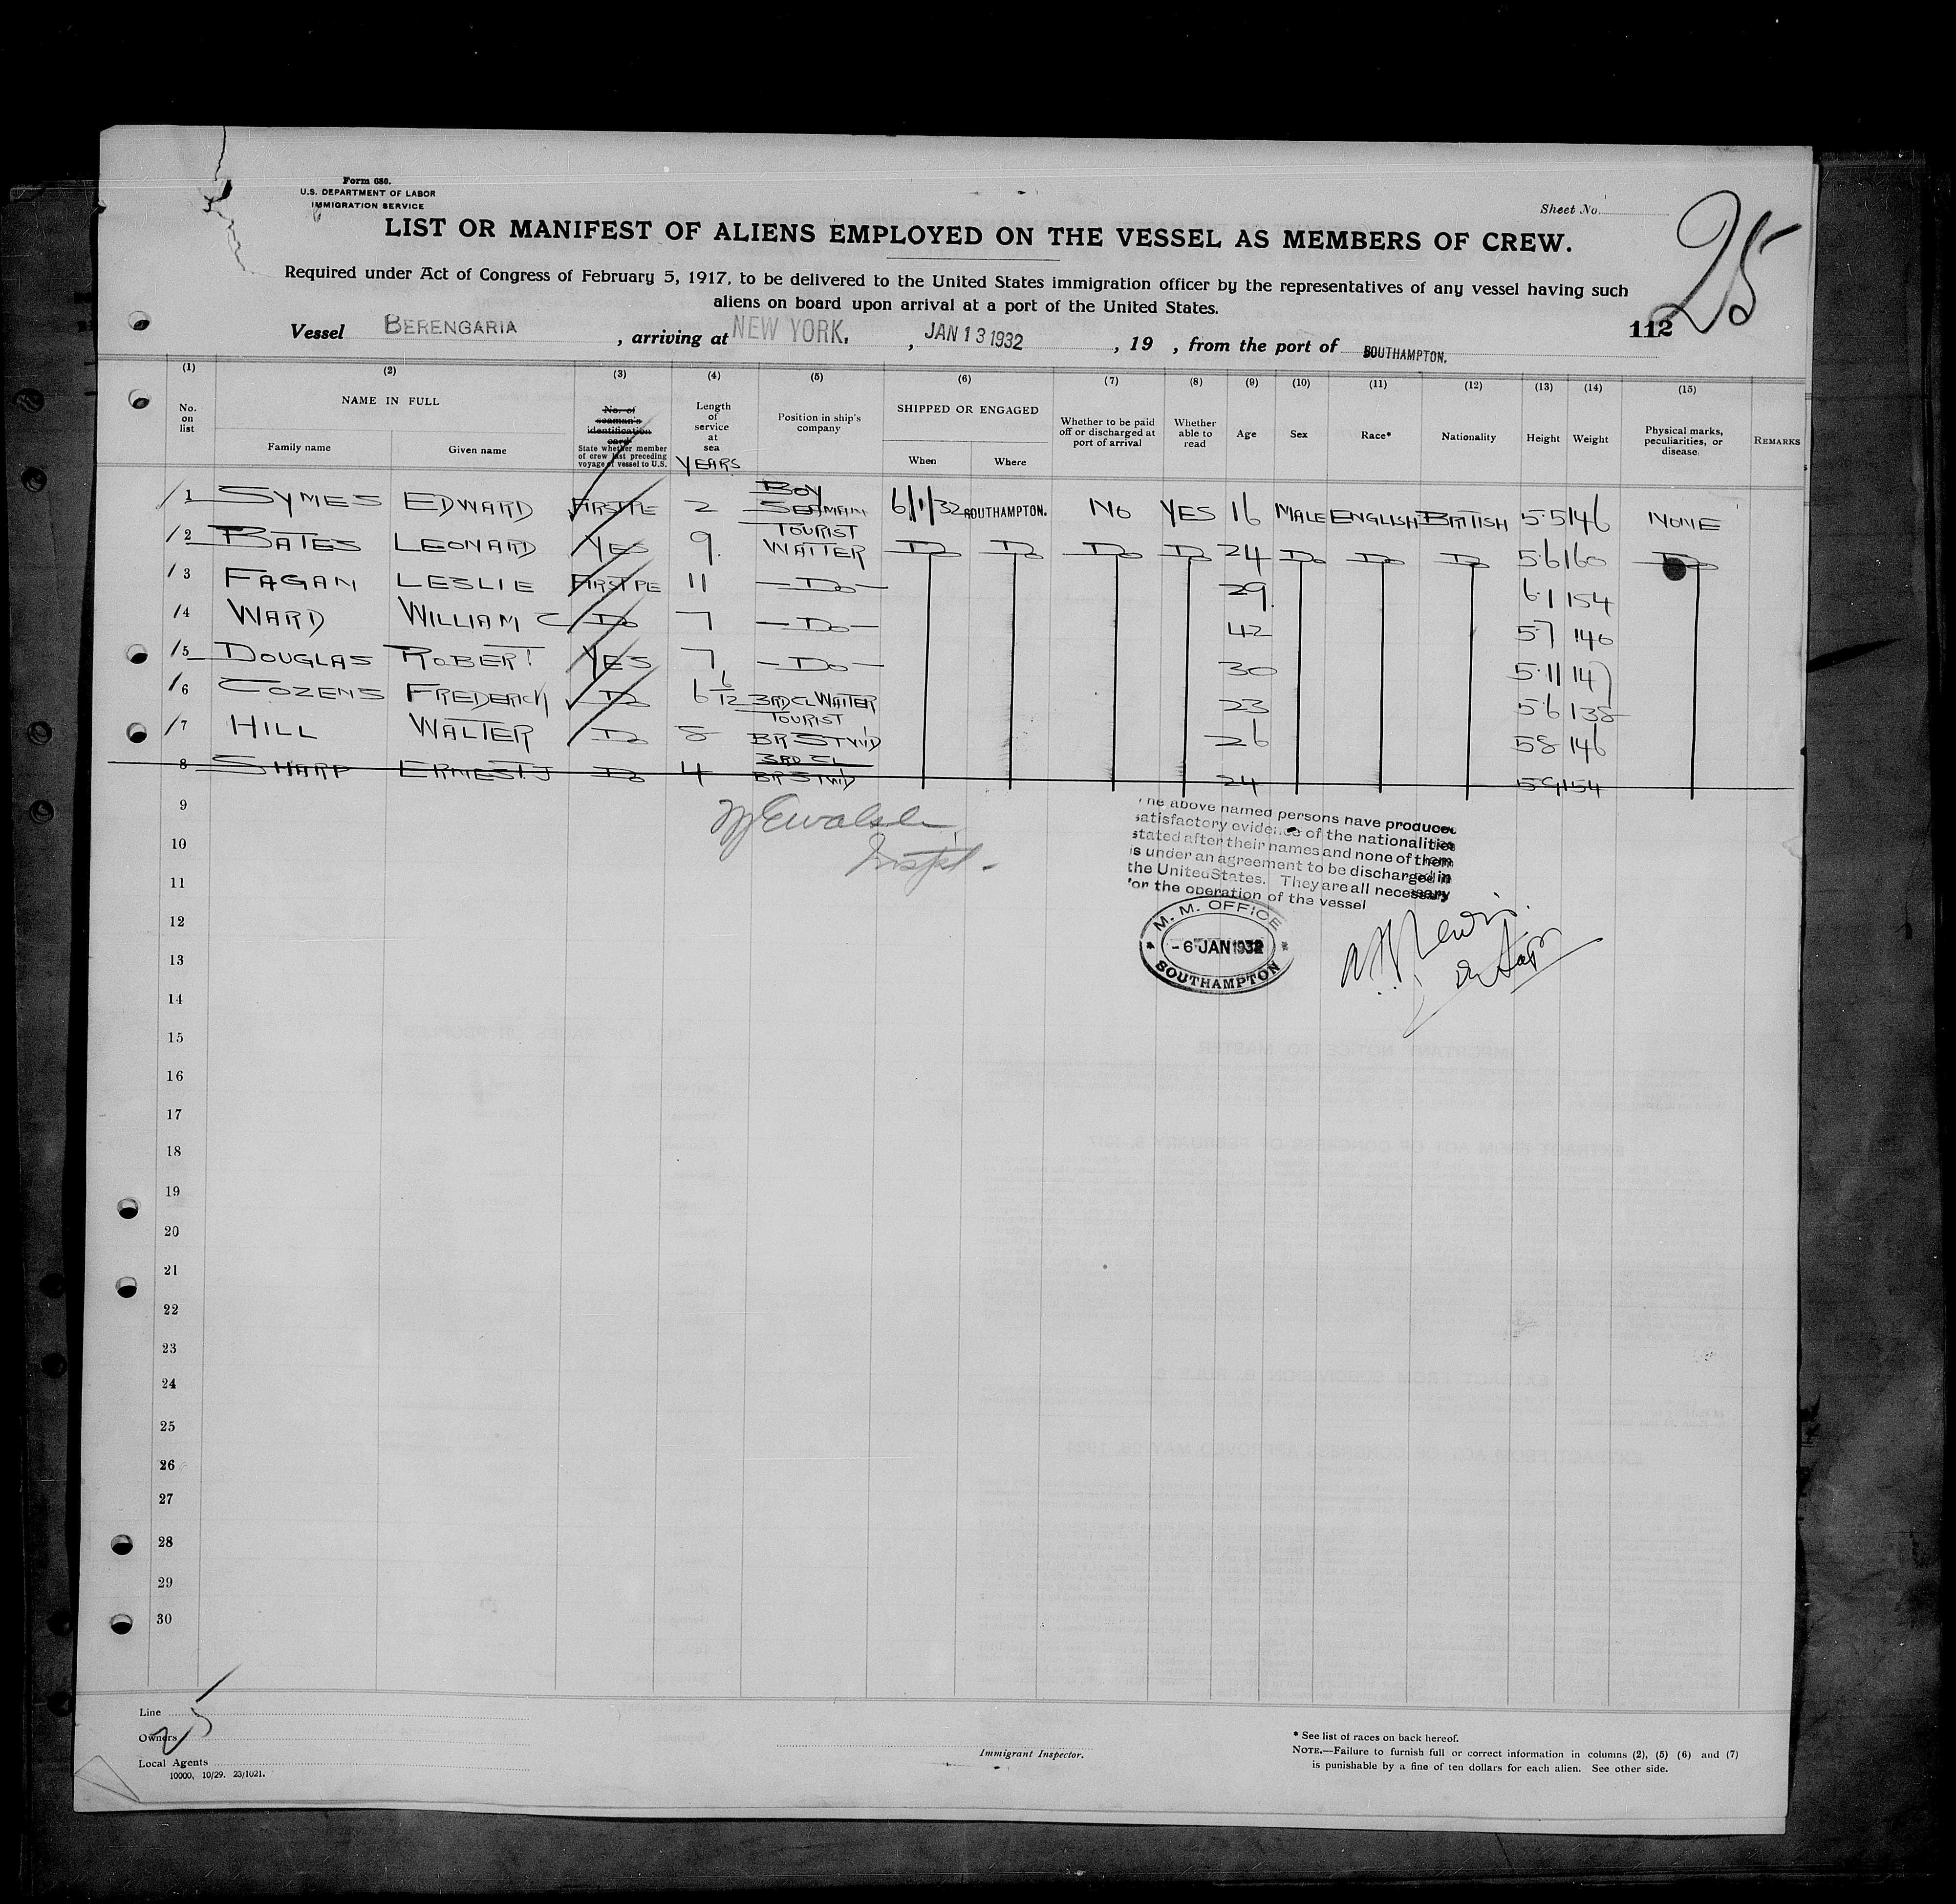 Form 680.
U.S. DEPARTMENT OF LABOR
IMMIGRATION SERVICE
Sheet No.
25
LIST OR MANIFEST OF ALIENS EMPLOYED ON THE VESSEL AS MEMBERS OF CREW.
Required under Act of Congress of February 5, 1917, to be delivered to the United States immigration officer by the representatives of any vessel having such
aliens on board upon arrival at a port of the United States.
112
Vessel BERENGARIA , arriving at NEW YORK. , JAN 13 1932 , 19 , from the port of SOUTHAMPTON.
(1) (2) (3) (4) (5) (6) (7) (8) (9) (10) (11) (12) (13) (14) (15)
No. on list NAME IN FULL Family name Given name No. of seaman's identification card State whether member of crew last preceding voyage of vessel to U.S. Length of service at sea YEARS Position in ship's company SHIPPED OR ENGAGED When Where Whether to be paid off or discharged at port of arrival Whether able to read Age Sex Race* Nationality Height Weight Physical marks, peculiarities, or disease. REMARKS
1 SYMES EDWARD FIRST 2 BOY SEAMAN 6/1/32 SOUTHAMPTON. NO YES 16 MALE ENGLISH BRITISH 5·5 146 NONE
2 BATES LEONARD YES 9. TOURIST WAITER DO DO DO DO 24 DO DO DO 5·6 160 DO
3 FAGAN LESLIE FIRST 11 — DO — 29. 6·1 154
4 WARD WILLIAM C DO 7 — DO — 42 5·7 140
5 DOUGLAS ROBERT YES 7 — DO — 30 5·11 147
6 COZENS FREDERICK DO 6 6/12 3RD CL WAITER 23 5·6 138
7 HILL WALTER DO 8 TOURIST BR STWD 26 5·8 146
8 SHARP ERNEST.J DO 4 3RD CL BR STWD 24 5·9 154
9
10
11
12
13
14
15
16
17
18
19
20
21
22
23
24
25
26
27
28
29
30
The above named persons have produced
satisfactory evidence of the nationalities
stated after their names and none of them
is under an agreement to be discharged in
the United States. They are all necessary
for the operation of the vessel
M. M. OFFICE
- 6 JAN 1932
SOUTHAMPTON
Line
Owners
Local Agents
10000, 10/29. 23/1021.
25
Immigrant Inspector.
* See list of races on back hereof.
NOTE.—Failure to furnish full or correct information in columns (2), (5) (6) and (7)
is punishable by a fine of ten dollars for each alien. See other side.